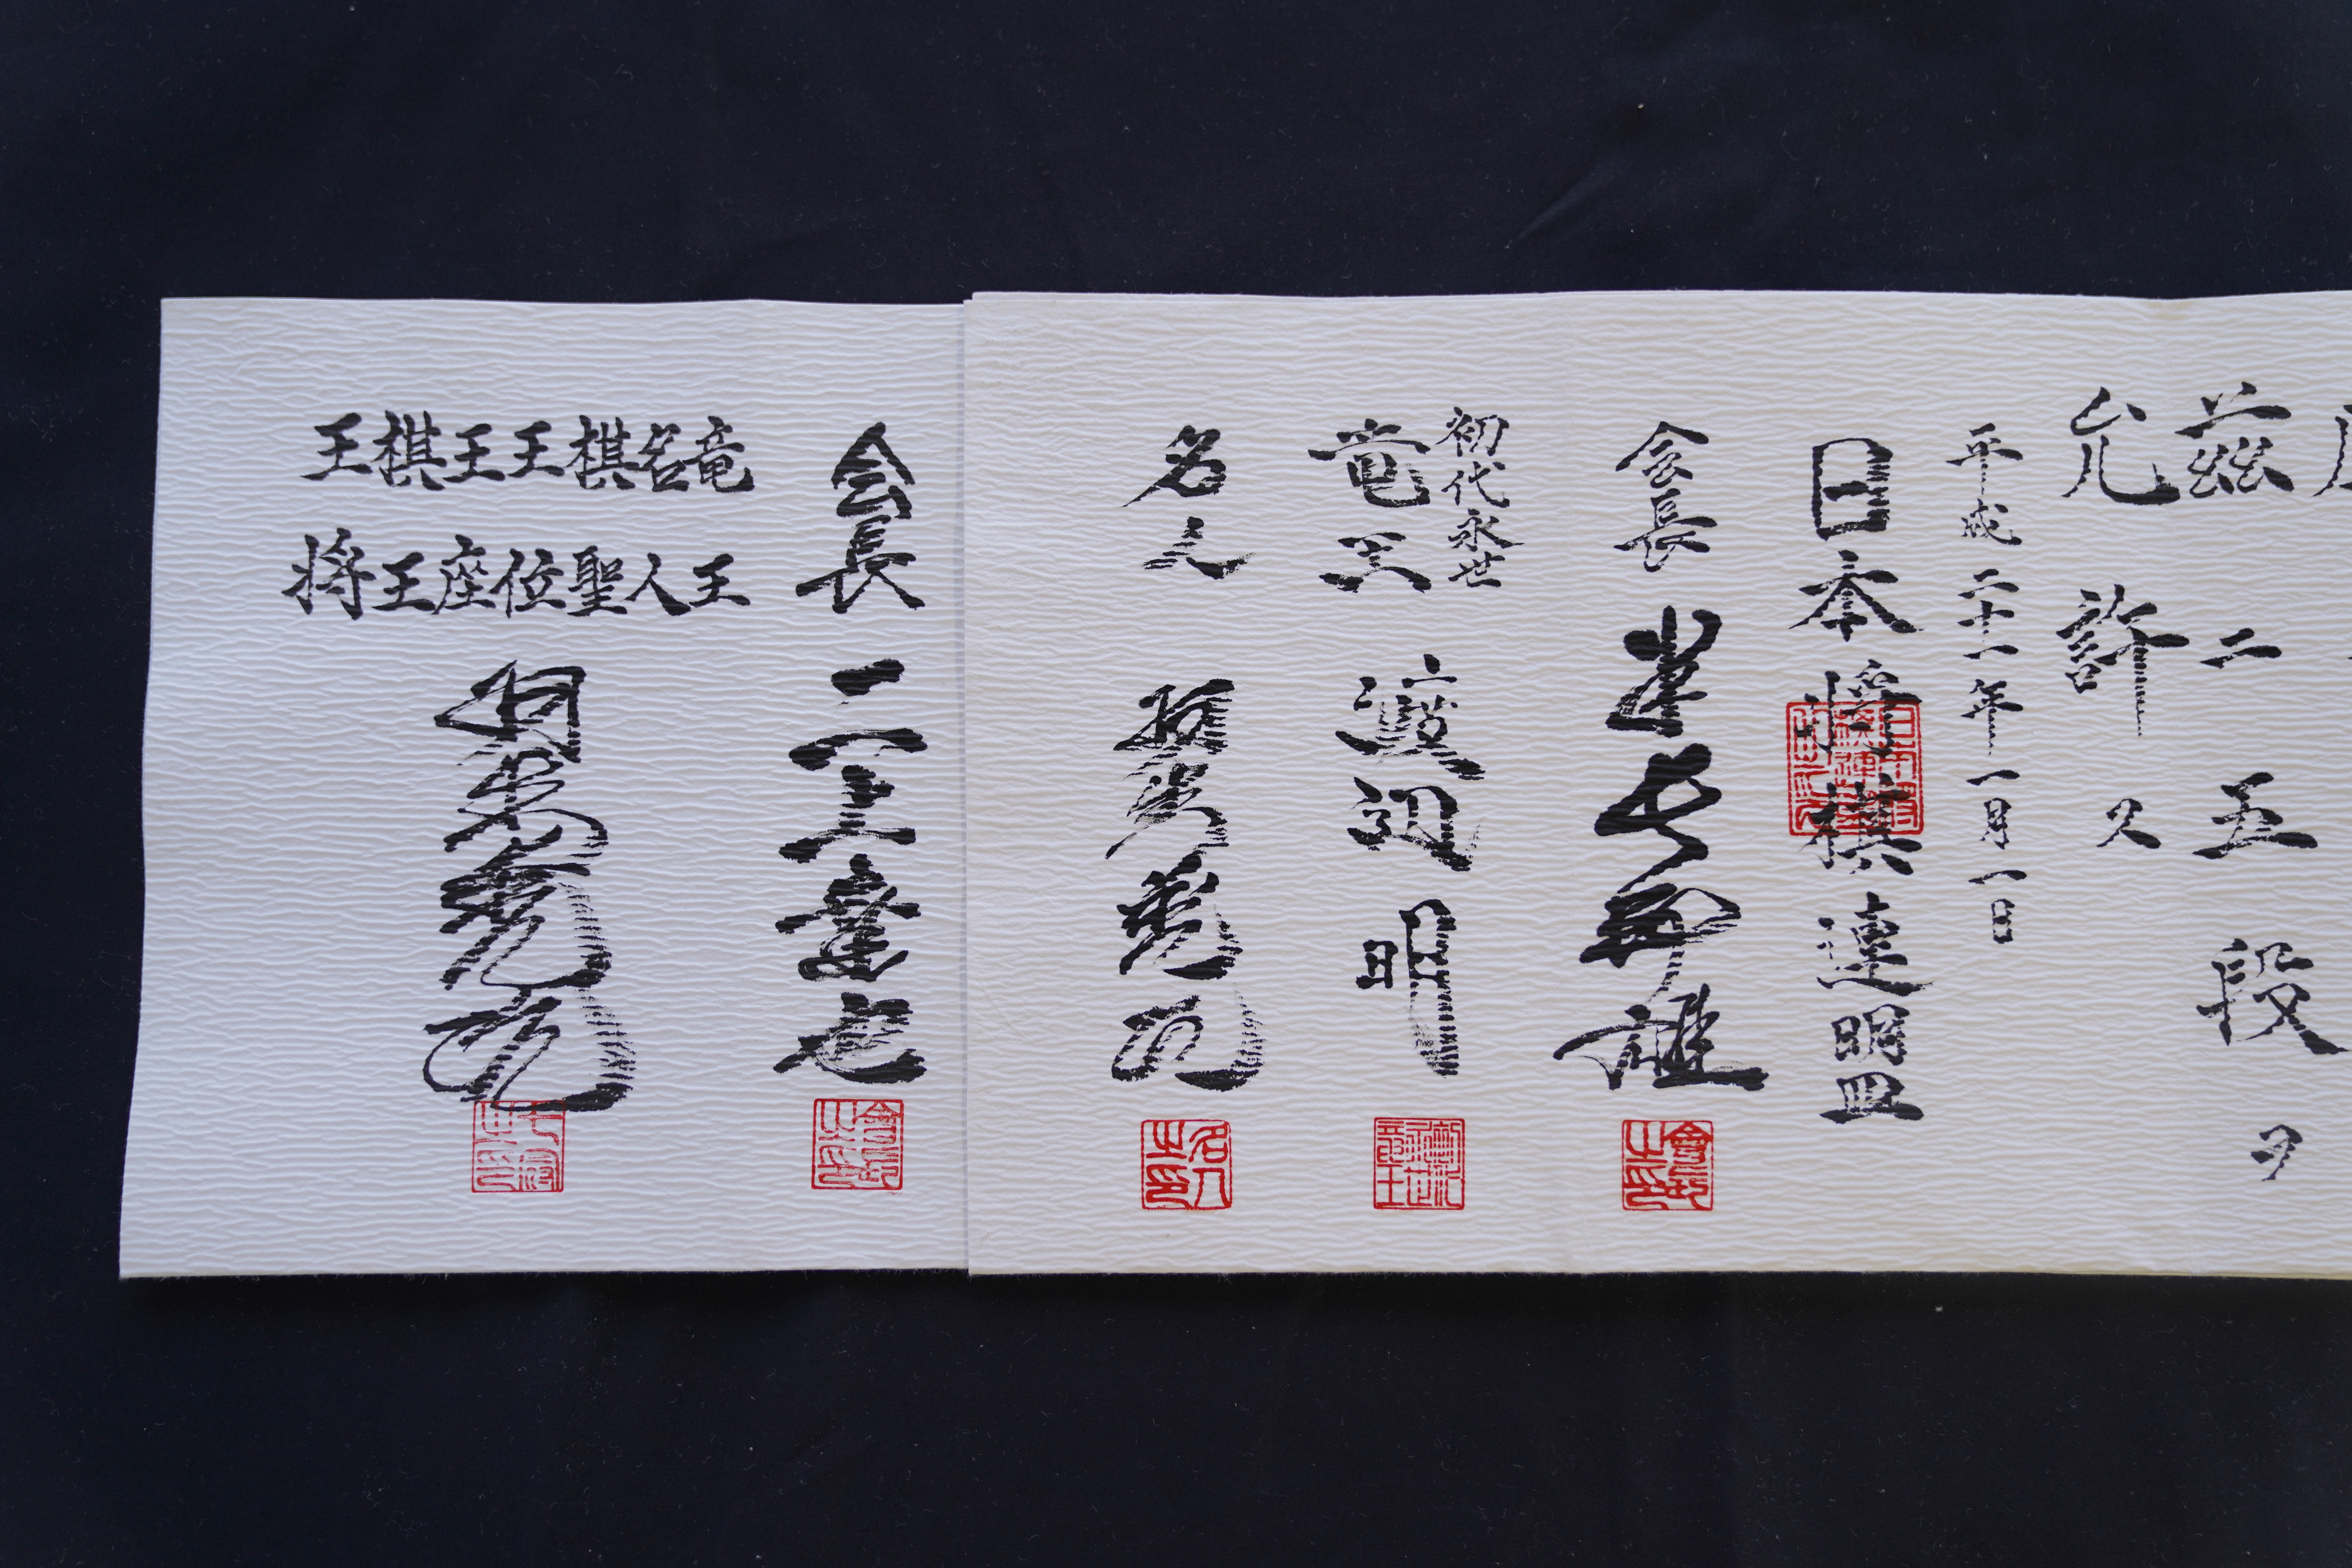 茲ニ五段ヲ
允許ス
平成二十一年一月一日
日本将棋連盟
会長 米長邦雄
會長之印
初代永世
竜王 渡辺明
名人 羽生善治
名人之印
会長 二上達也
會長之印
竜王
名人
棋聖
王位
王座
棋王
王将
羽生善治